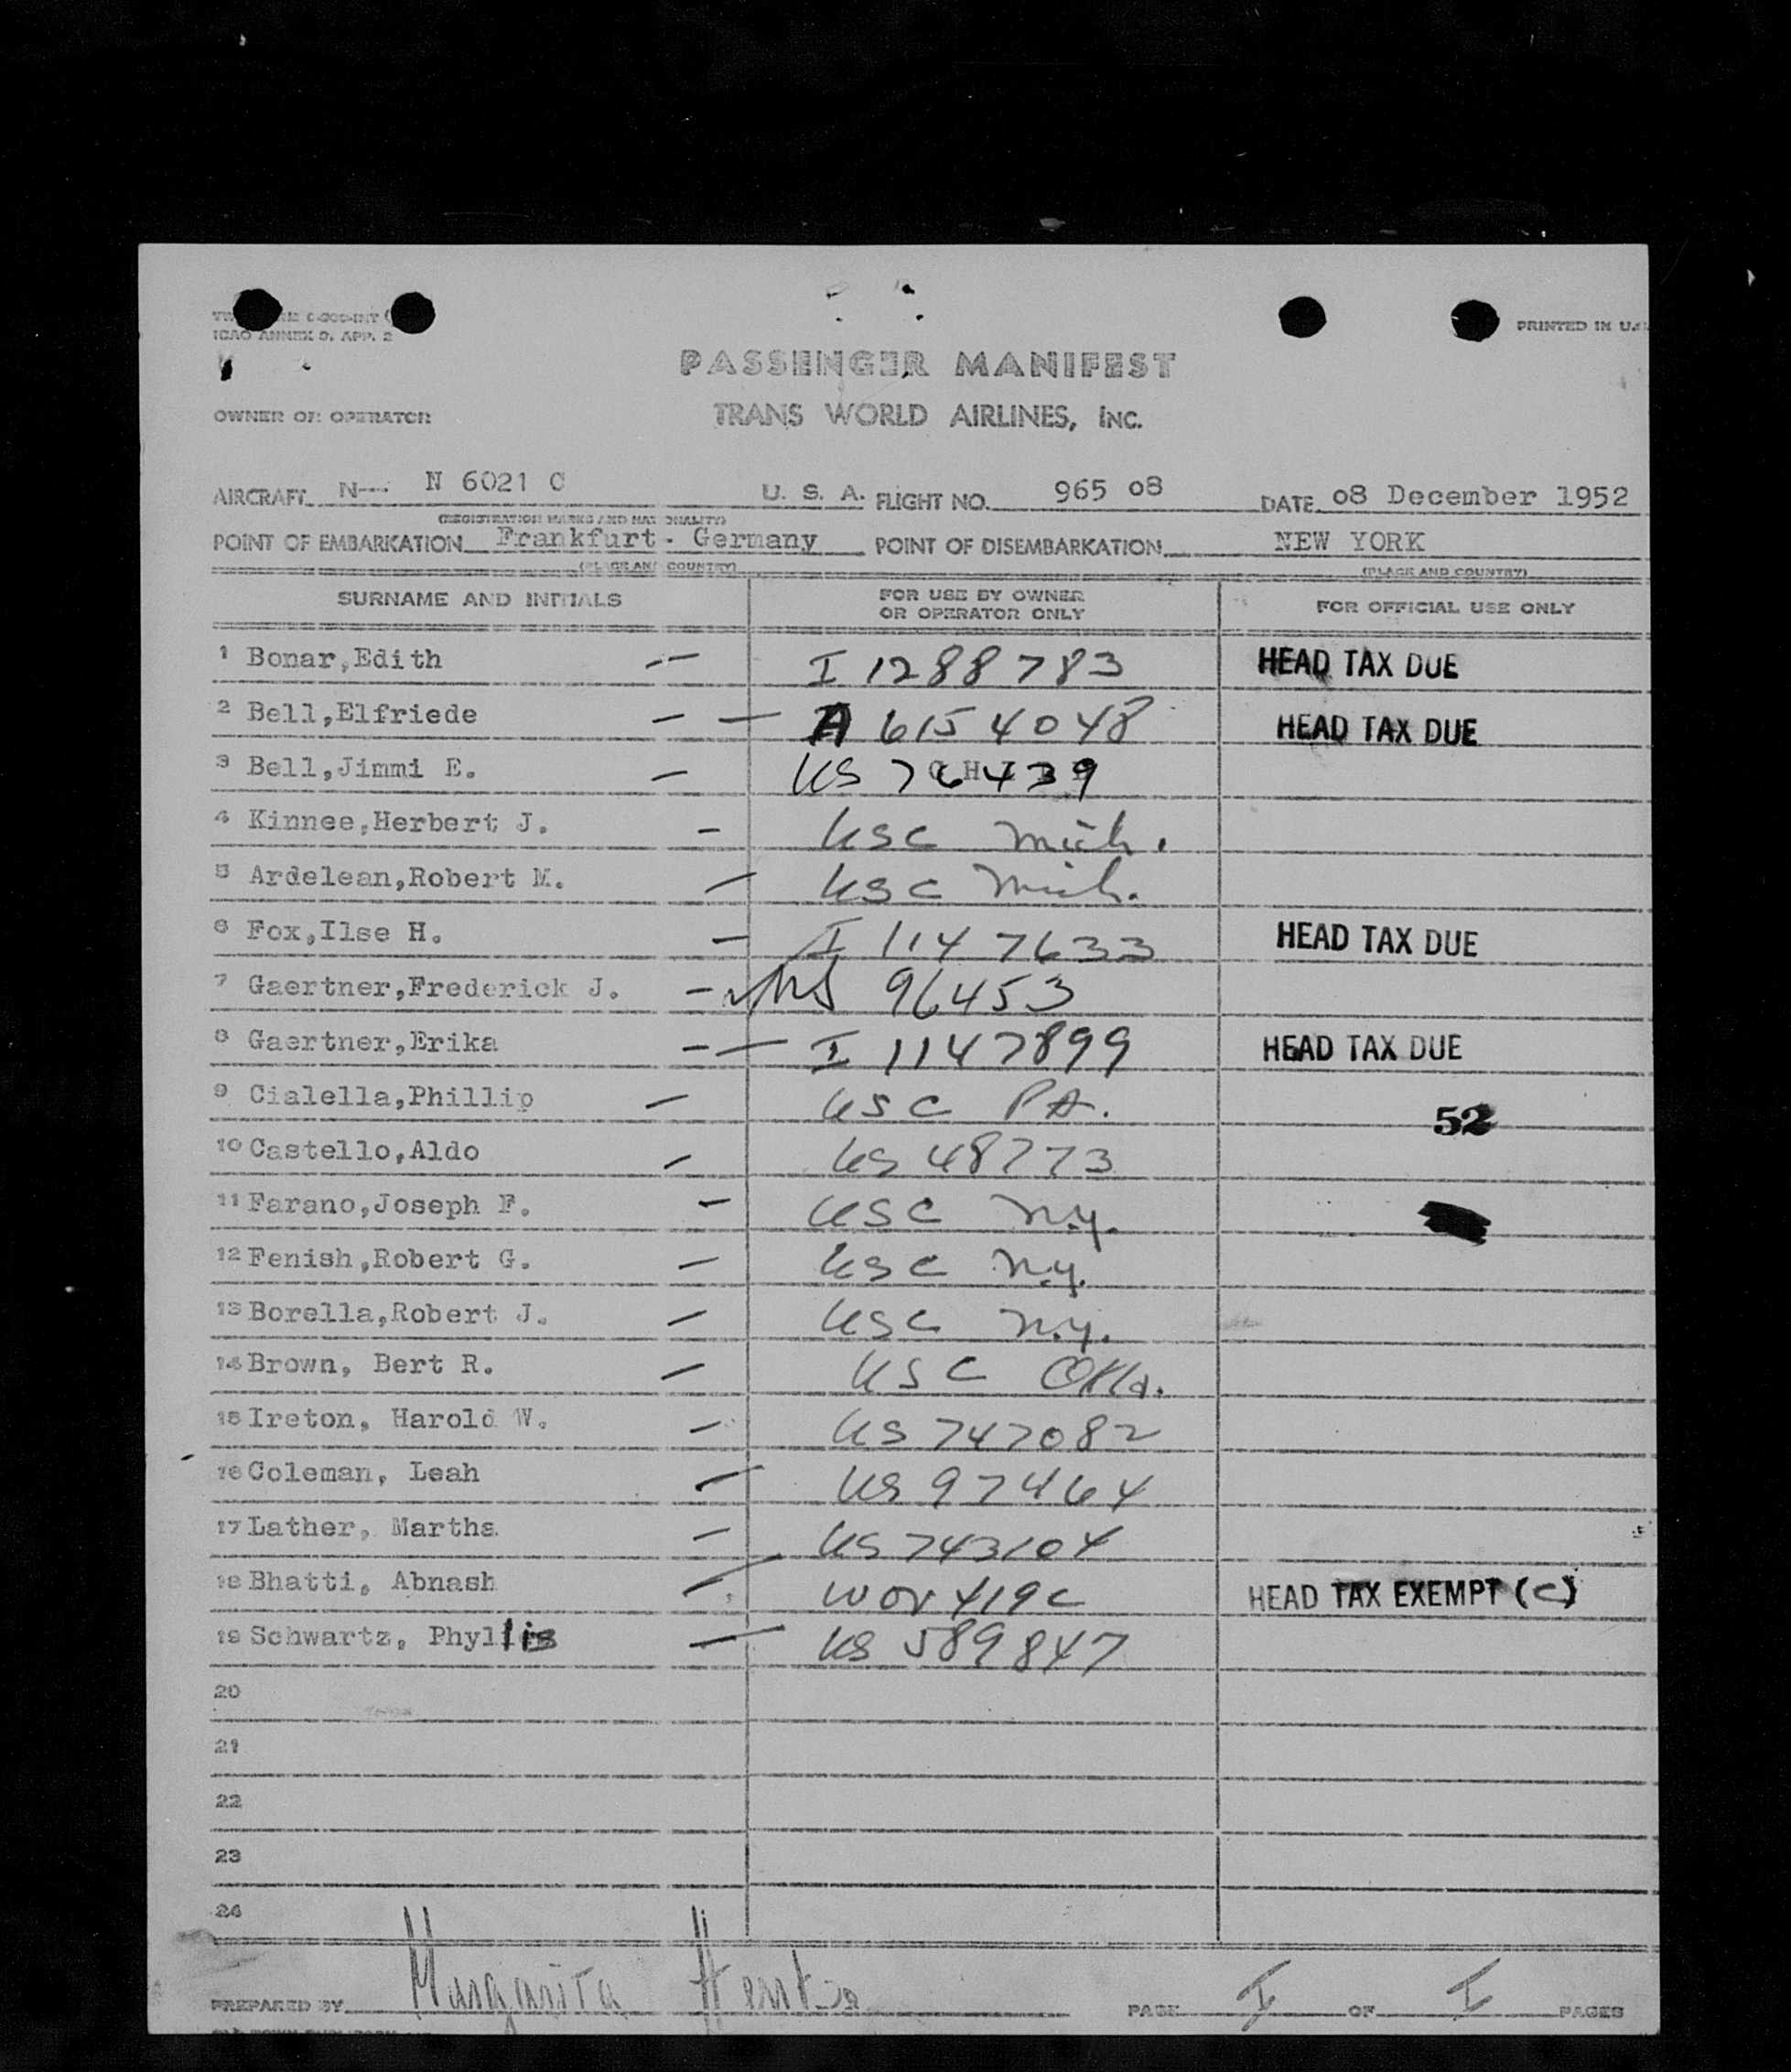 ICAO ANNEX 9, APP. 2
PRINTED IN U.S.
PASSENGER MANIFEST
OWNER OR OPERATOR TRANS WORLD AIRLINES, INC.
AIRCRAFT N--- N 6021 C U. S. A. FLIGHT NO. 965 08 DATE 08 December 1952
(REGISTRATION MARKS AND NATIONALITY)
POINT OF EMBARKATION Frankfurt - Germany POINT OF DISEMBARKATION NEW YORK
(PLACE AND COUNTRY) (PLACE AND COUNTRY)
SURNAME AND INITIALS FOR USE BY OWNER OR OPERATOR ONLY FOR OFFICIAL USE ONLY
1 Bonar,Edith -- I 1288783 HEAD TAX DUE
2 Bell,Elfriede -- A 6154048 HEAD TAX DUE
3 Bell,Jimmi E. - US 76439
4 Kinnee,Herbert J. - USC Mich.
5 Ardelean,Robert M. - USC Mich.
6 Fox,Ilse H. - I 1147633 HEAD TAX DUE
7 Gaertner,Frederick J. - US 96453
8 Gaertner,Erika -- I 1147899 HEAD TAX DUE
9 Cialella,Phillip - USC PA.
52
10 Castello,Aldo - US 48773
11 Farano,Joseph F. - USC N.Y.
12 Fenish,Robert G. - USC N.Y.
13 Borella,Robert J. - USC N.Y.
14 Brown, Bert R. - USC Okla.
15 Ireton, Harold W. - US 747082
16 Coleman, Leah - US 97464
17 Lather, Martha - US 743104
18 Bhatti, Abnash - HEAD TAX EXEMPT (C)
19 Schwartz, Phyllis - US 589847
20
21
22
23
24
PREPARED BY Margarita PAGE I OF I PAGES